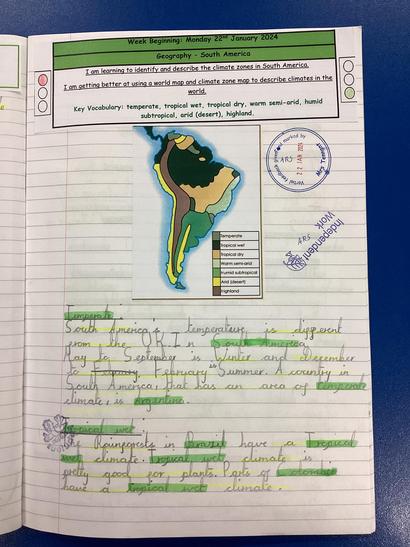 Week Beginning: Monday 22nd January 2024
Geography - South America
I am learning to identify and describe the climate zones in South America.
I am getting better at using a world map and climate zone map to describe climates in the
world.
Key Vocabulary: temperate, tropical wet, tropical dry, warm semi-arid, humid
subtropical, arid (desert), highland.
Verbal feedback marked by
ARS
22 JAN 2024
Independent
Work
ARS
Temperate
Tropical wet
Tropical dry
Warm semi-arid
Humid subtropical
Arid (desert)
Highland
Temperate
South America's temperature is different
from the UK. In South America
May to September is Winter and December
to February Summer. A country in
South America, that has an area of temperate
climate, is Argentina.
Tropical wet
The Rainforests in Brazil have a Tropical
wet climate. Tropical wet climate is
pretty good for plants. Parts of Colombia
have a tropical wet climate.